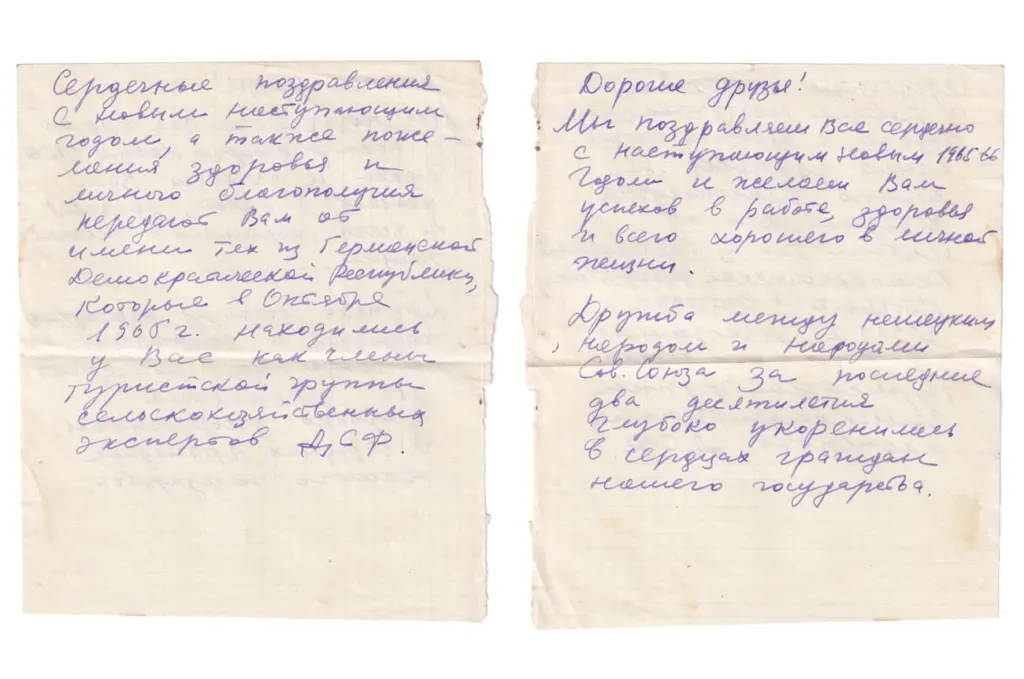 Сердечные поздравления
с Новым наступающим
годом, а также поже-
лания здоровья и
личного благополучия
передают Вам от
имени тех из Германской
Демократической Республики,
которые в Октябре
1965 г. находились
у Вас как члены
туристской группы
сельскохозяйственных
экспертов ДСФ.
Дорогие друзья!
Мы поздравляем Вас сердечно
с наступающим Новым 1965 66
Годом и желаем Вам
успехов в работе, здоровья
и всего хорошего в личной
жизни.
Дружба между немецким
народом и народами
Сов. Союза за последние
два десятилетия
глубоко укоренились
в сердцах граждан
нашего государства.